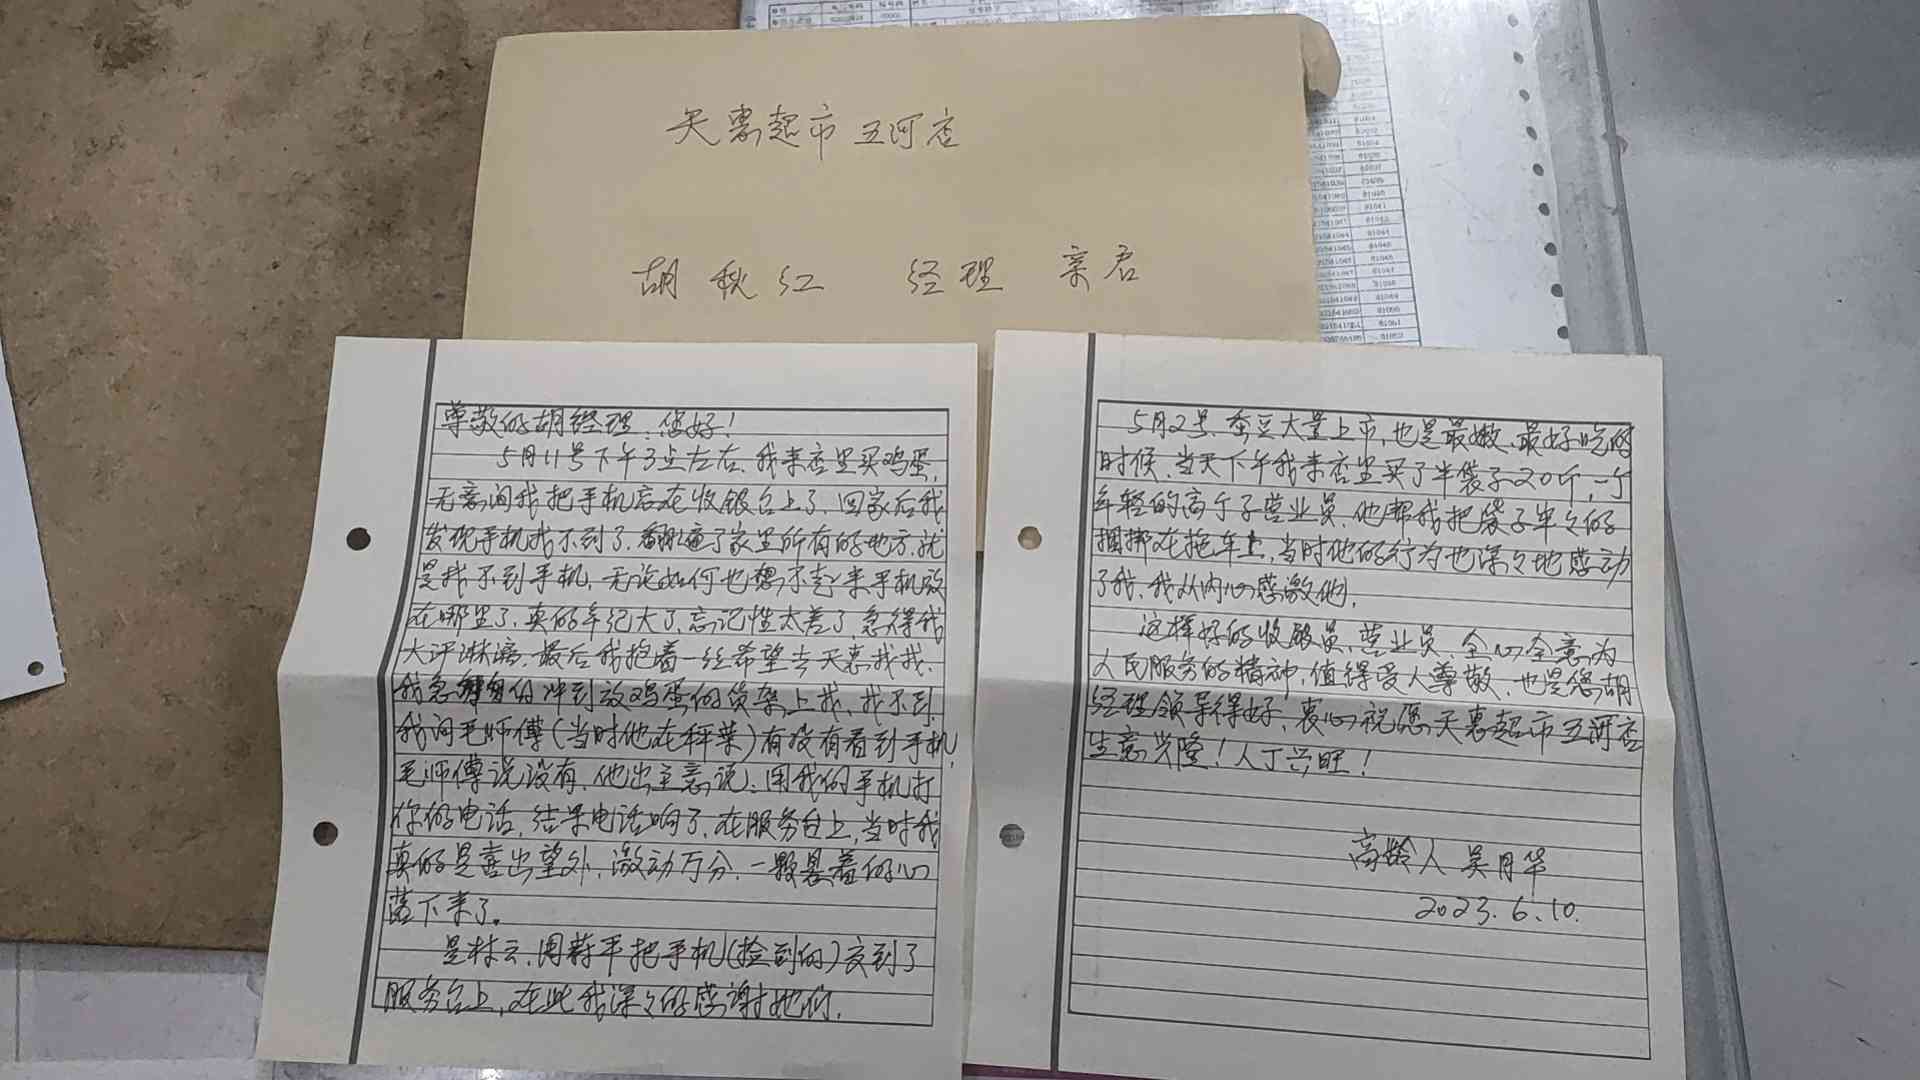 天惠超市 五河店
胡秋红 经理 亲启
尊敬的胡经理、您好!
5月11号下午3点左右、我来店里买鸡蛋,
无意间我把手机忘在收银台上了、回家后我
发现手机找不到了、翻遍了家里所有的地方、就
是找不到手机、无论如何也想不起来手机放
在哪里了、真的年纪大了、忘记性太差了、急得我
大汗淋漓、最后我抱着一丝希望去天惠找找、
我急匆匆的冲到放鸡蛋的货架上找、找不到、
我问毛师傅(当时他在秤菜)有没有看到手机,
毛师傅说没有、他出主意说:用我的手机打
你的电话、结果电话响了、在服务台上、当时我
真的是喜出望外、激动万分、一颗悬着的心
落下来了。
是林云、周莉平把手机(捡到的)交到了
服务台上,在此我深々的感谢她们.
5月2号、蚕豆大量上市、也是最嫩、最好吃的
时候、当天下午我来店里买了半袋子20斤,一个
年轻的高个子营业员、他帮我把袋子牢々的
捆绑在拖车上、当时他的行为也深々地感动
了我、我从内心感激他.
这样好的收银员、营业员、全心全意为
人民服务的精神、值得受人尊敬、也是您胡
经理领导得好、衷心祝愿天惠超市五河店
生意兴隆!人丁兴旺!
高龄人 吴月华
2023.6.10.